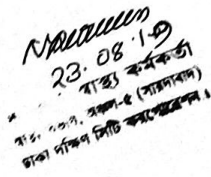 23.08.19
স্বাস্থ্য কর্মকর্তা
অঞ্চল-৫ (সায়দাবাদ)
ঢাকা দক্ষিণ সিটি কর্পোরেশন।